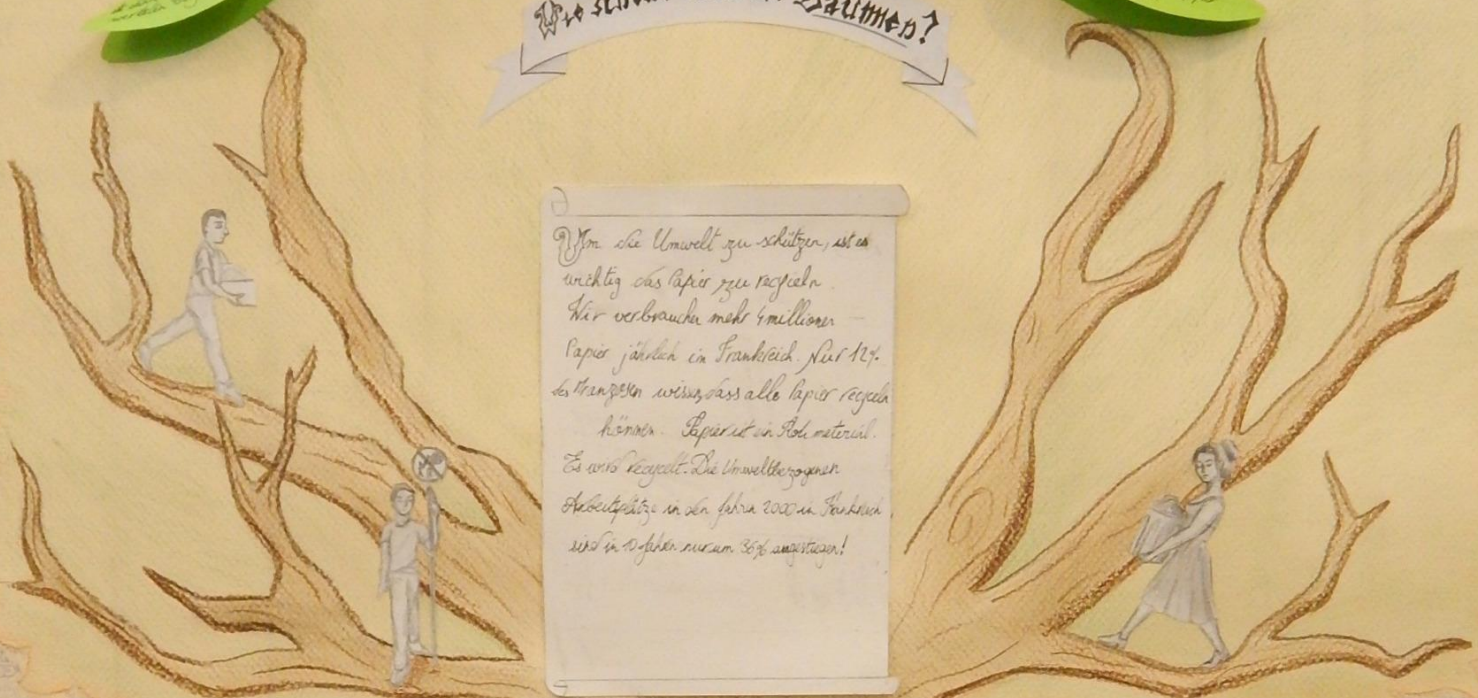 Bäumen?
Um die Umwelt zu schützen, ist es
wichtig das Papier zu recyceln.
Wir verbrauchen mehr 4 millionen
Papier jährlich in Frankreich. Nur 12%
des Franzosen wissen dass alle Papier recyceln
können. Papier ist ein Rohmaterial.
Es wird recycelt. Die Umweltbezogenen
Arbeitsplätze in den Jahren 2000 in Frankreich
sind in 10 Jahren nur um 36% angestiegen!